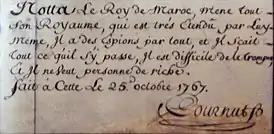 Notta Le Roy de Maroc mene tout
Son Royaume, qui est trés Etendu par Luy-
Meme, Il a des Espions par tout, et Il Scait
Tout ce qu'il s'y passe, Il est difficile de le tromper
Et Il ne veut personne de riche.
fait à Cette Le 25. octobre 1767.